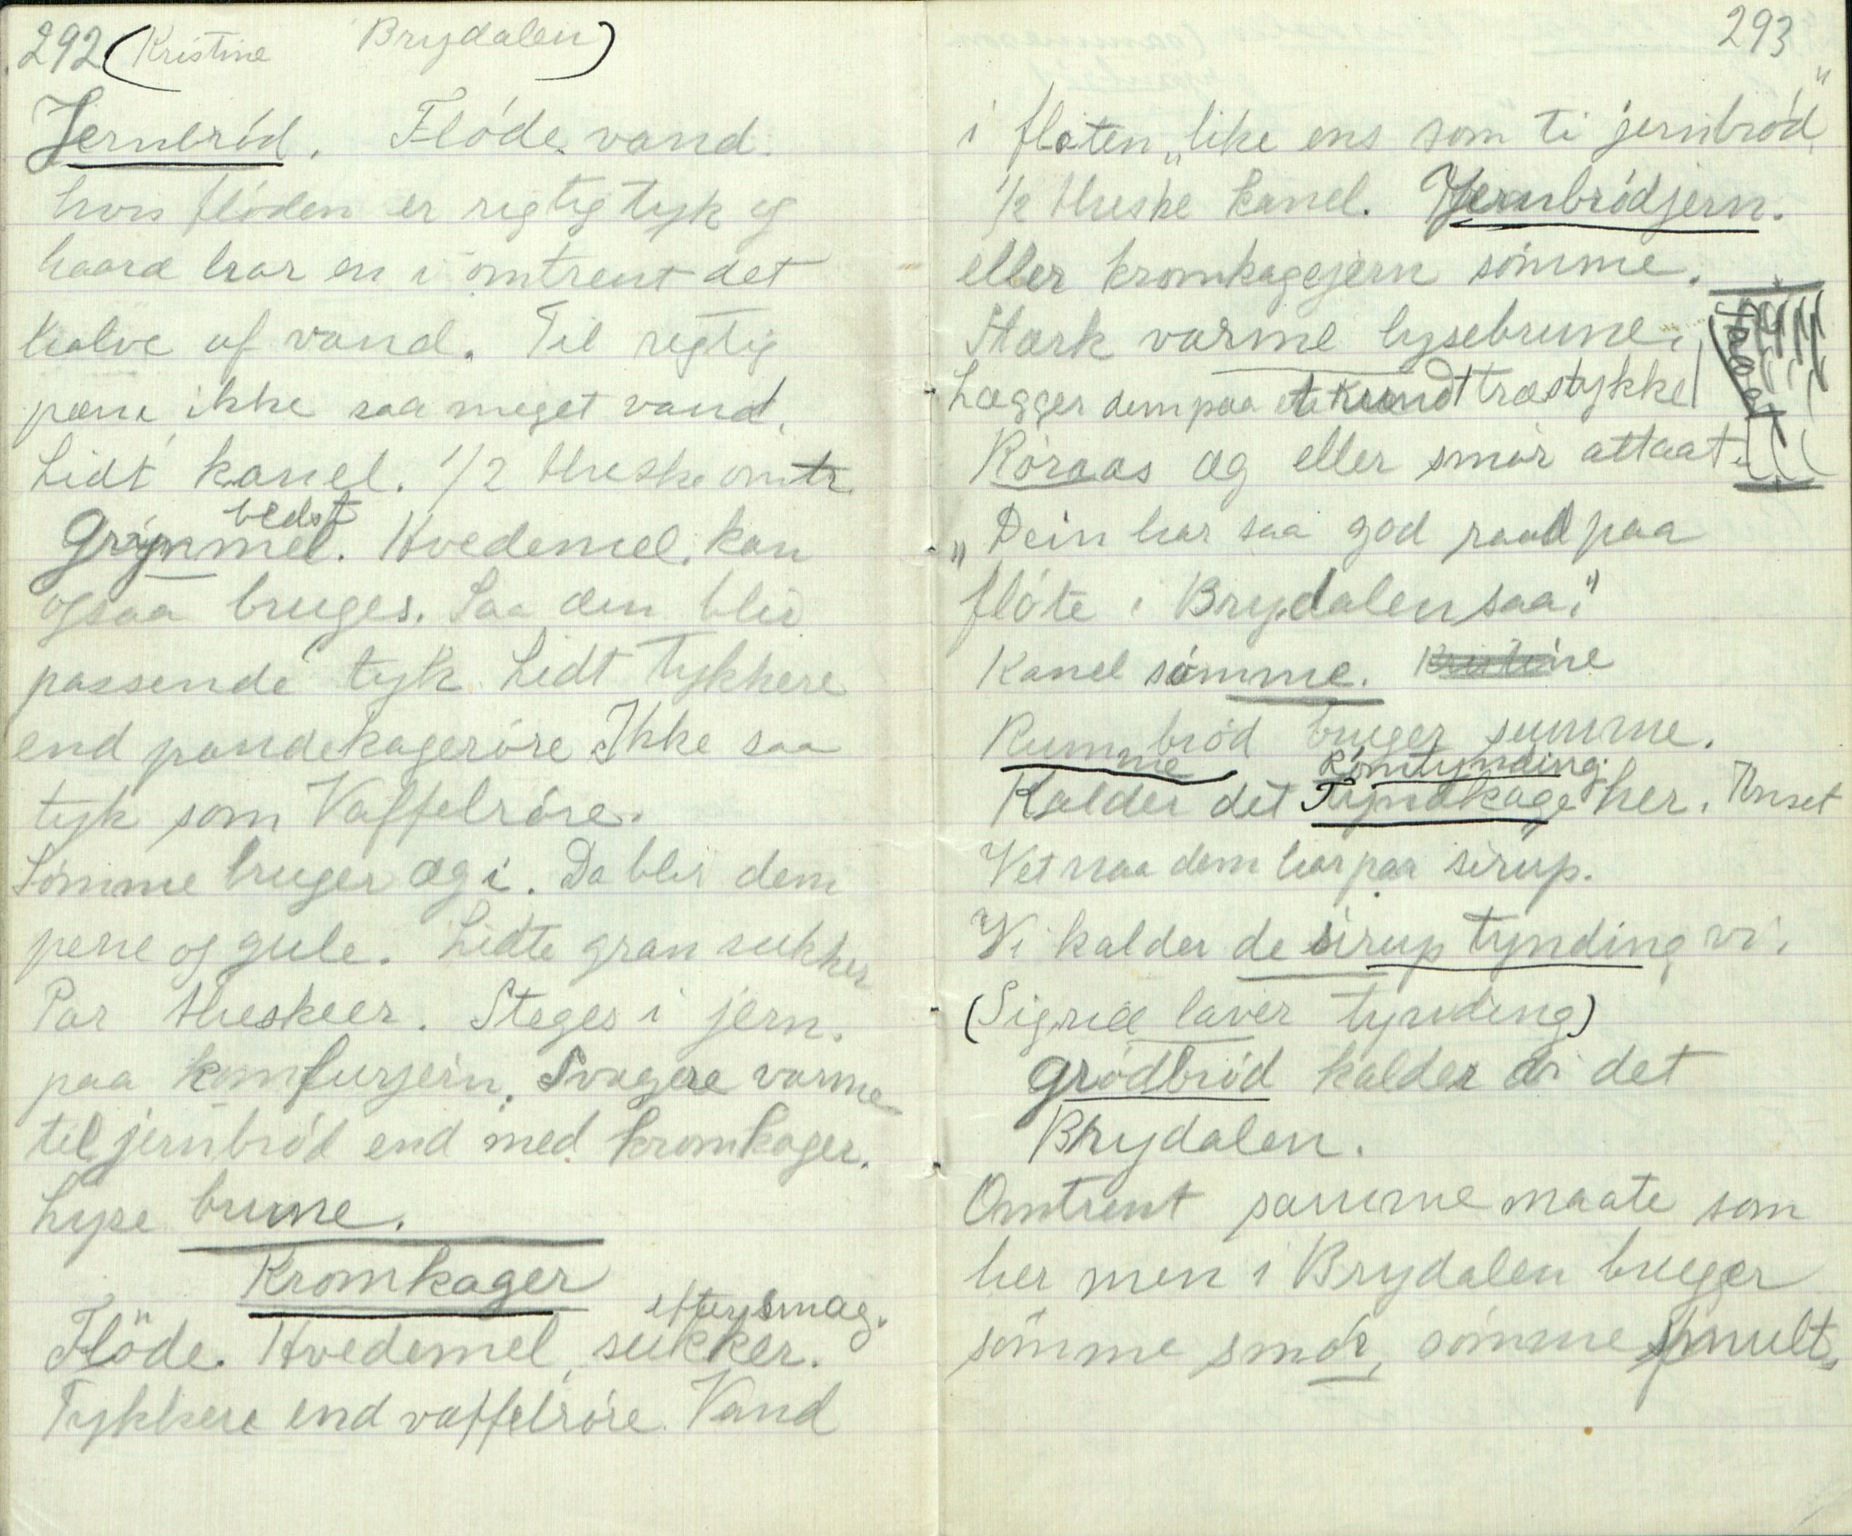 292 (Kristine Brydalen)
Jernbröd. Flöde. vand.
hvis flöden er rigtig tyk og
haard har en i omtrent det
halve af vand. Til rigtig
pene ikke saa meget vand.
Lidt kanel. 1/2 theske omtr.
bedst
Grynmel. Hvedemel. kan
ogsaa bruges. Saa den blir
passende tyk. Lidt tykkere
end pandekageröre Ikke saa
tyk som Vaffelröre.
Sömme bruger æg i. Da blir dem
pene og gule. Lidte gran sukker
Par theskeer. Steges i jern.
paa komfurjern. Svagere varme
til jernbröd end med kromkager.
Lyse brune.
Kromkager
eftersmag.
Flöde. Hvedemel, sukker.
Tykkere end vaffelröre. Vand
293
i fløten „like ens som ti jernbröd"
1/2 theske kanel. Jernbrödjern.
eller kromkagejern sömme.
Stærk varme lysebrune.
Lægger dem paa et rundt træstykke
Röraas æg eller smör attaat.
„Dein har saa god raad paa
flöte i Brydalen saa."
Kanel sömme.
Rumbröd bruger summe.
Rumme Römtynding.
Kalder det Tyndkage her. Unset
Vet naa dem har paa sirup.
Vi kalder de sirup tynding vi.
(Sigrid laver tynding)
grödbröd kalder di det
Brydalen.
Omtrent samme maate som
her men i Brydalen bruger
sömme smör, sömme smult.